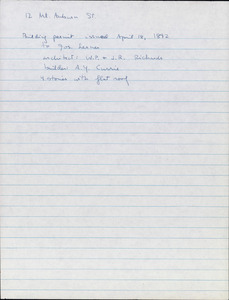 12 Mt. Auburn St.
Building permit issued April 16, 1892
to
architect: W.P. & J.R. Richards
builder A.Y. Currie
4 stories with flat roof